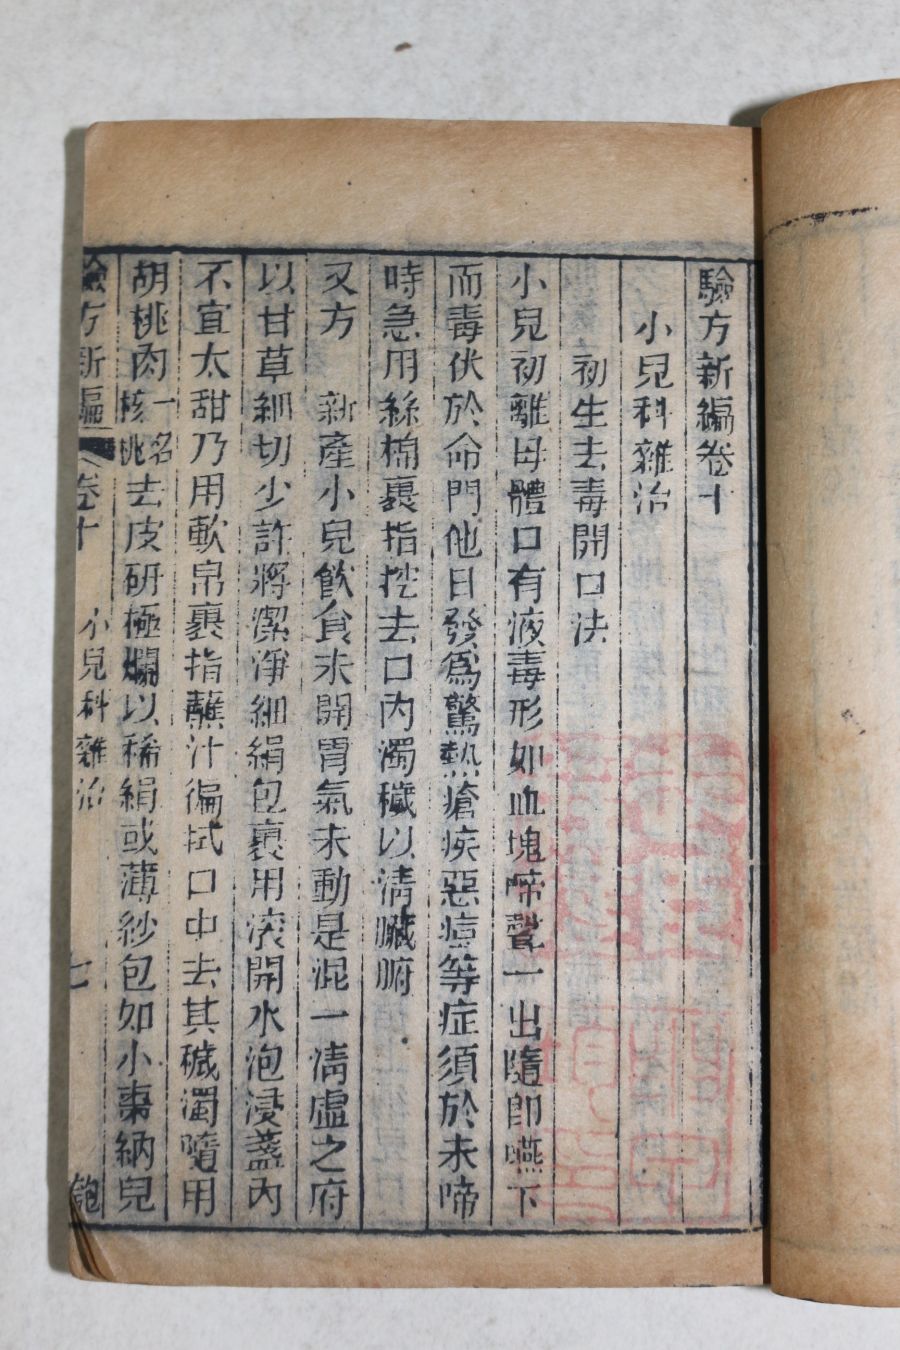 驗方新編卷十
小兒科雜治
初生去毒開口法
小兒初離母體口有液毒形如血塊啼聲一出隨卽嚥下
而毒伏於命門他日發爲驚熱瘡疾惡痘等症須於未啼
時急用絲棉裹指挖去口內濁穢以清臟腑
又方 新產小兒飮食未開胃氣未動是混一清虛之府
以甘草細切少許將潔淨細絹包裹用滾開水泡浸盞內
不宜太甜乃用軟帛裹指蘸汁徧拭口中去其穢濁隨用
胡桃肉一名核桃去皮研極爛以稀絹或薄紗包如小棗納兒
驗方新編 卷十 小兒科雜治 七